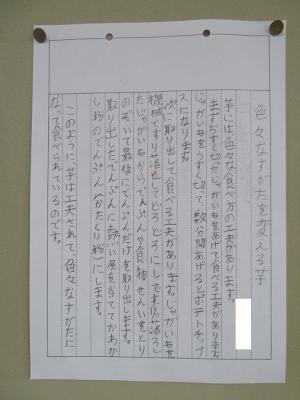 色々なすがたを変える芋
芋には色々な食べ方の工夫があります。
まずうすく切ったじゃがいもをあげて食べる工夫があります。
じゃがいもをうすく切って、数分間あげるとポテトチップ
スになります。
次に取り出して食べる工夫があります。じゃがいもを
機械ですり落としてどろどろにします。すり落とし
たじゃがいもからでんぷんや食物せんいをとり
のぞいて最後にでんぷんだけを取り出します。
取り出したでんぷんに熱い風を当ててかわか
し粉のでんぷん(かたくり粉)にします。
このように、芋は工夫されて、色々なすがたに
なって食べられているのです。